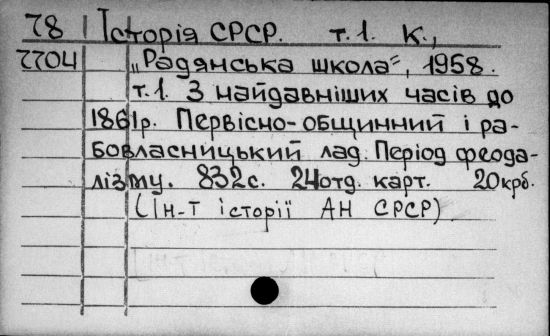 78 Історія СРСР. т.1. К.,
7704 „Радянська школа", 1958.
т.1. З найдавніших часів до
1861р. Первісно-общинний і ра-
бовласницький лад. Період феода-
лізму. 832с. 24отд. карт. 20крб.
(Ін-т історії АН СРСР)